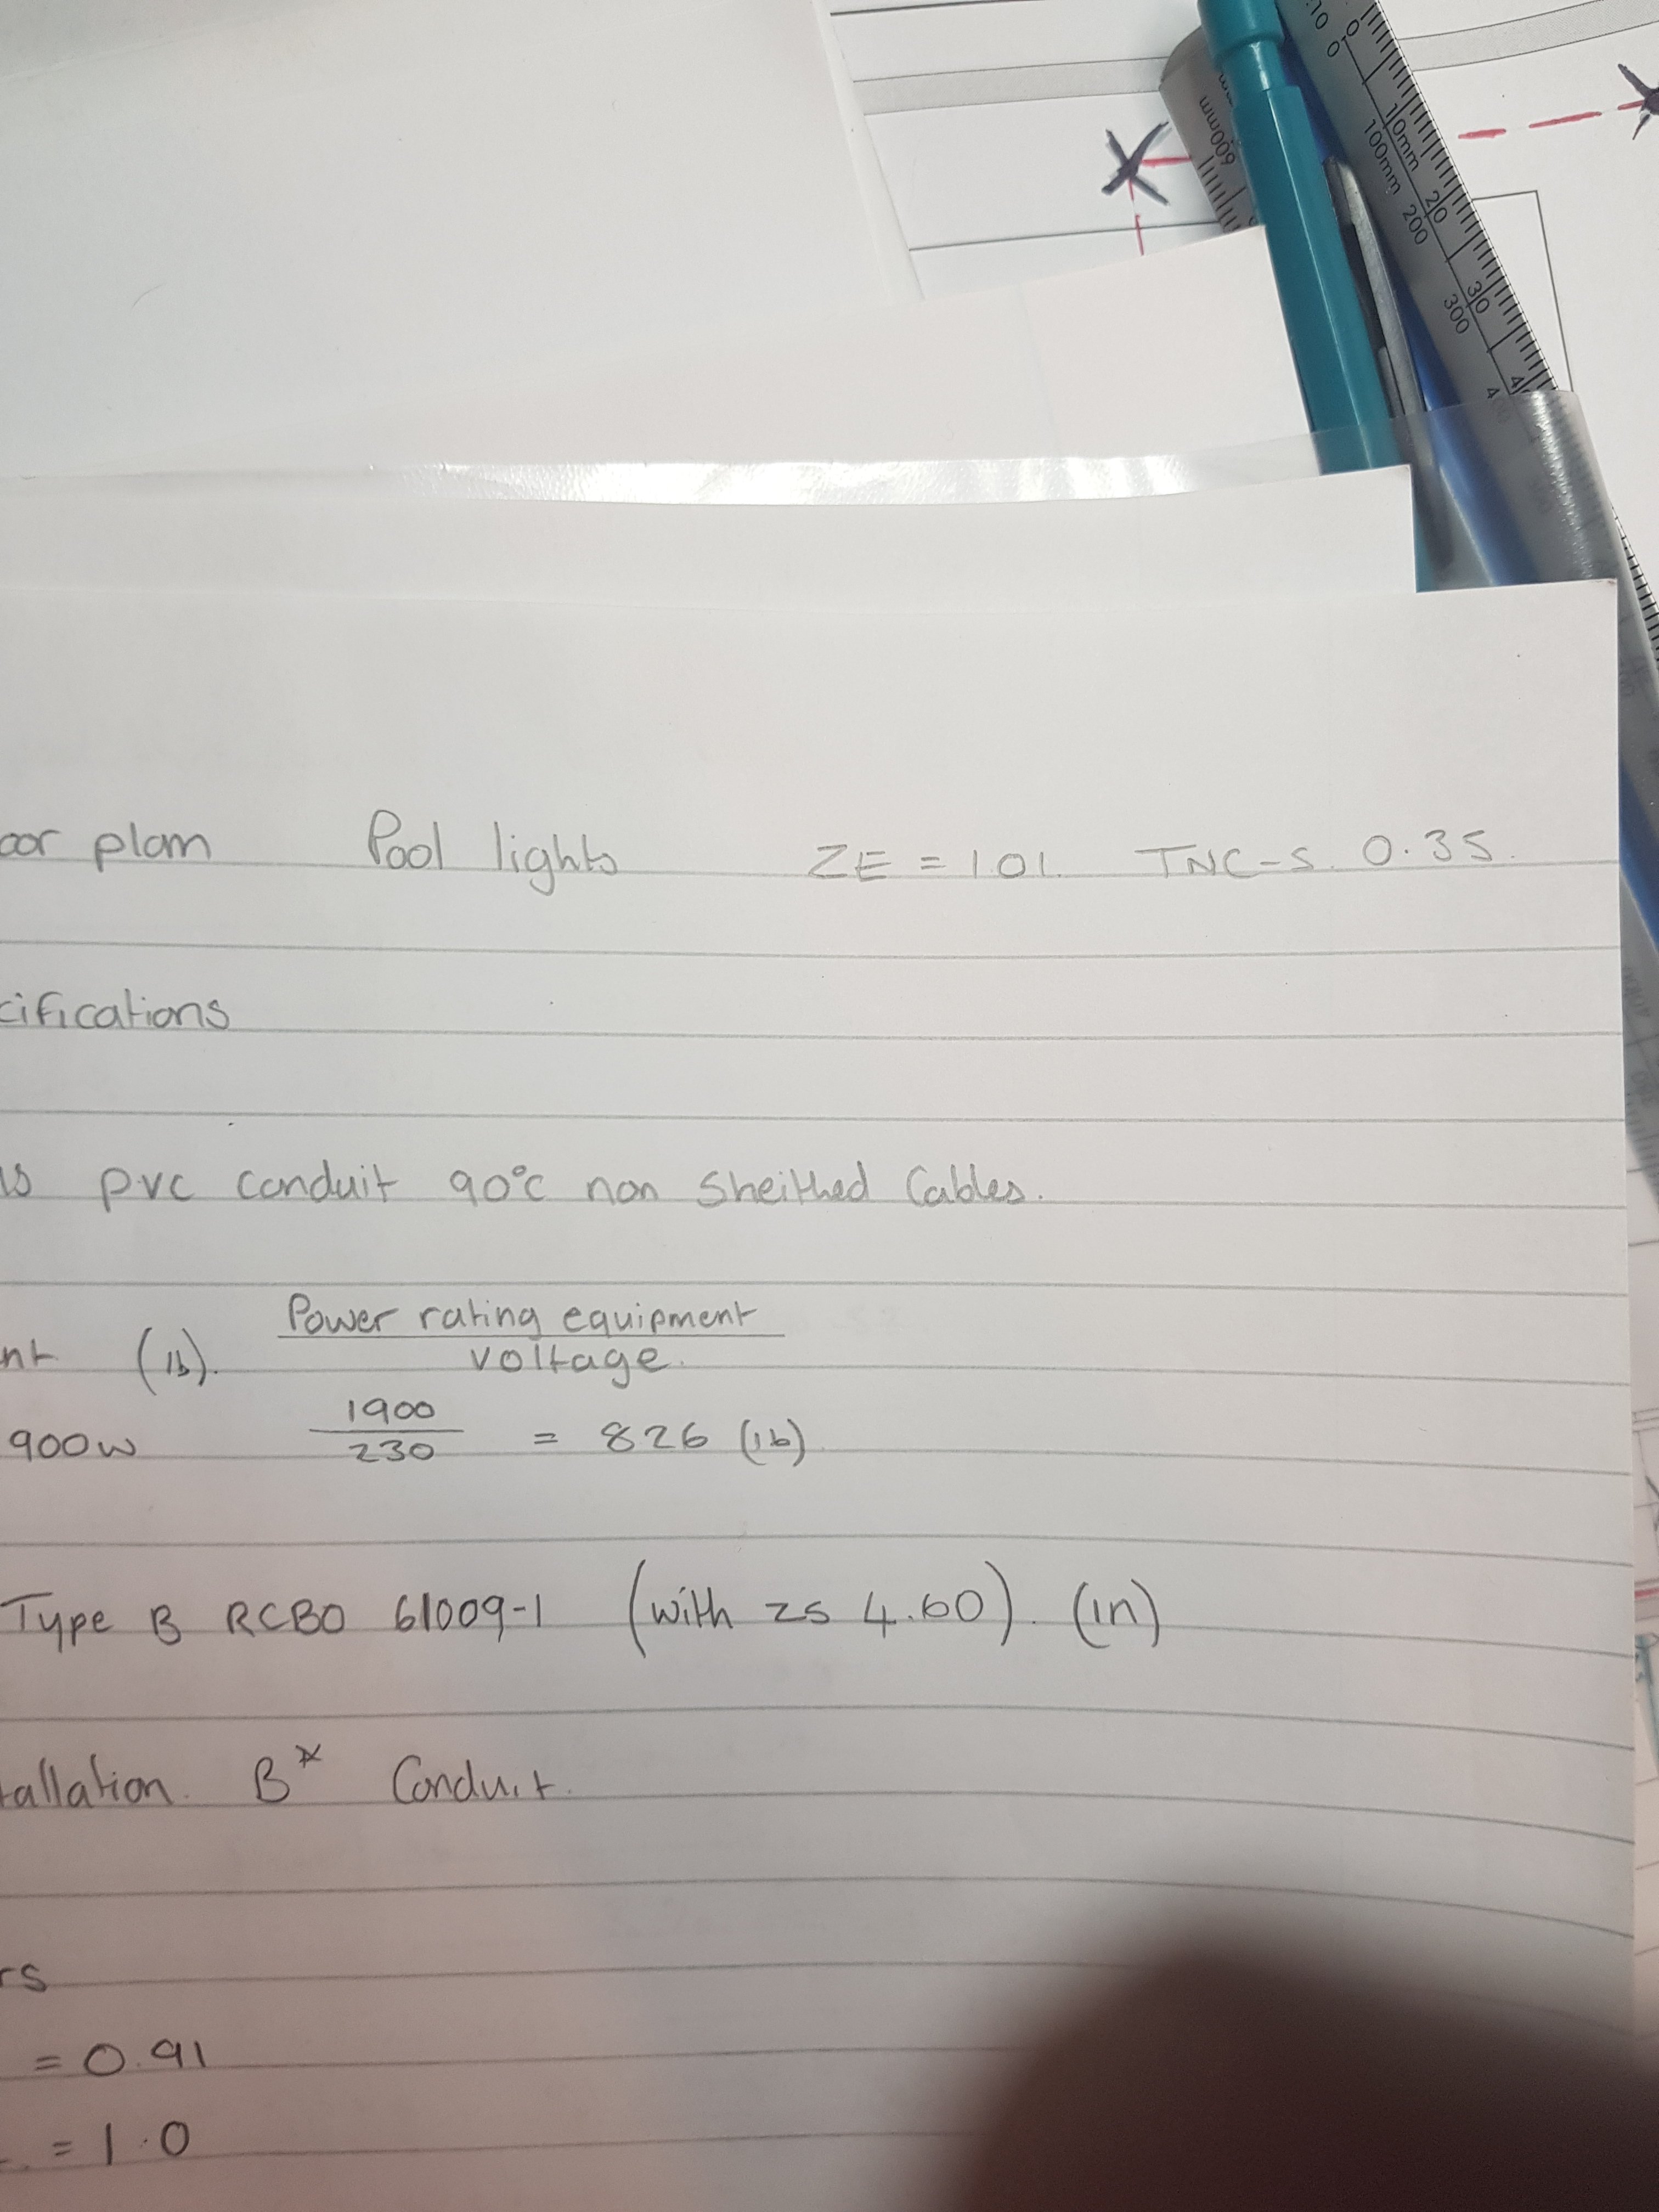 600mm
10
0
0
10mm
100mm
20
200
30
300
oor plan Pool lights ZE = 101. TNC-S. 0.35.
cifications
pvc conduit 90°c non Sheithed Cables.
Power rating equipment
nt (Ib). voltage.
1900
900w 230 = 826 (Ib)
Type B RCBO 61009-1 (with zs 4.60). (in)
tallation. B* Conduit.
rs
= 0.91
= 1.0